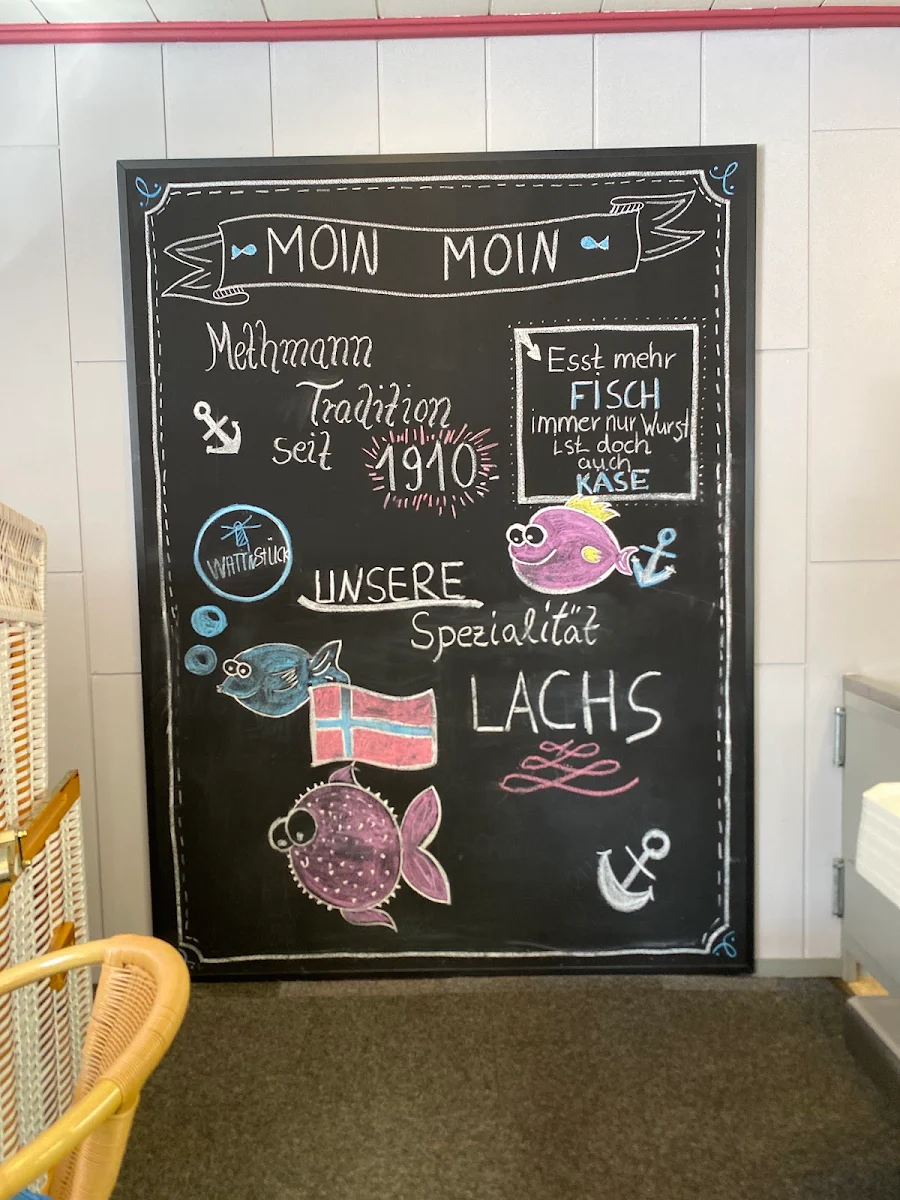 MOIN MOIN
Methmann
Tradition
seit
1910
Esst mehr
FISCH
immer nur Wurst
ist doch
auch
KÄSE
WATTNSTÜCK
UNSERE
Spezialität
LACHS